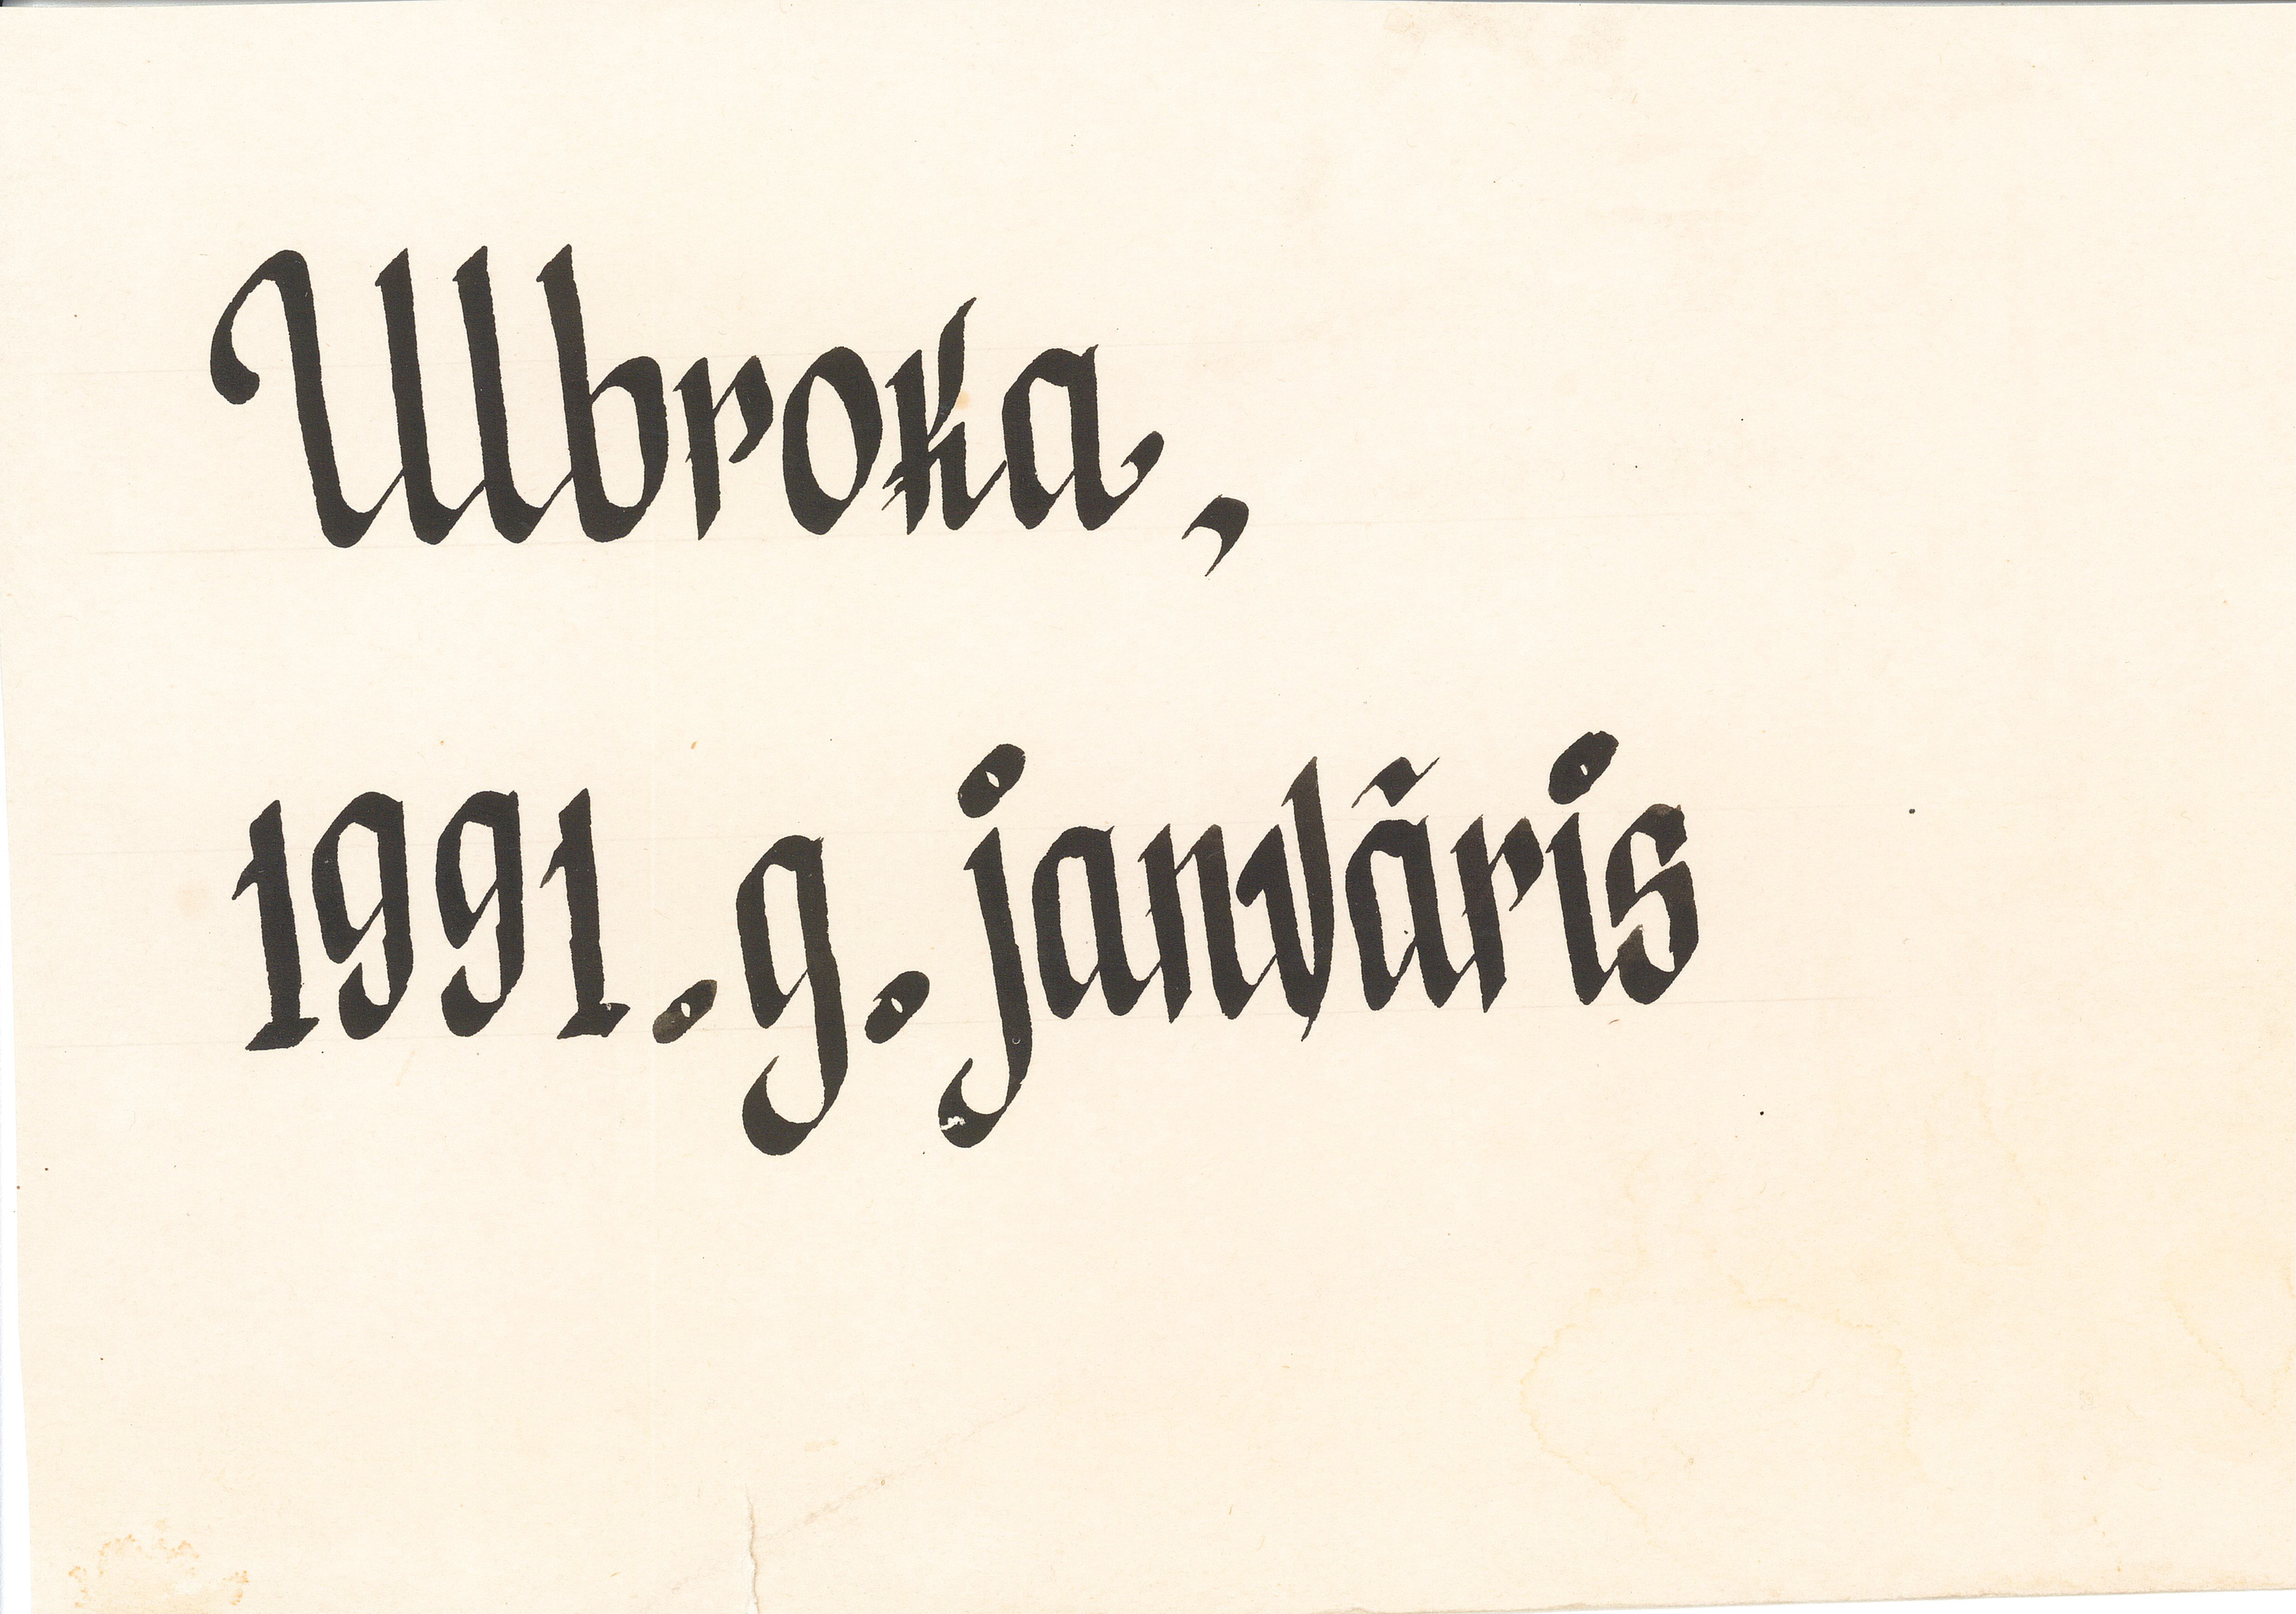 Ulbroka,
1991. g. janvāris